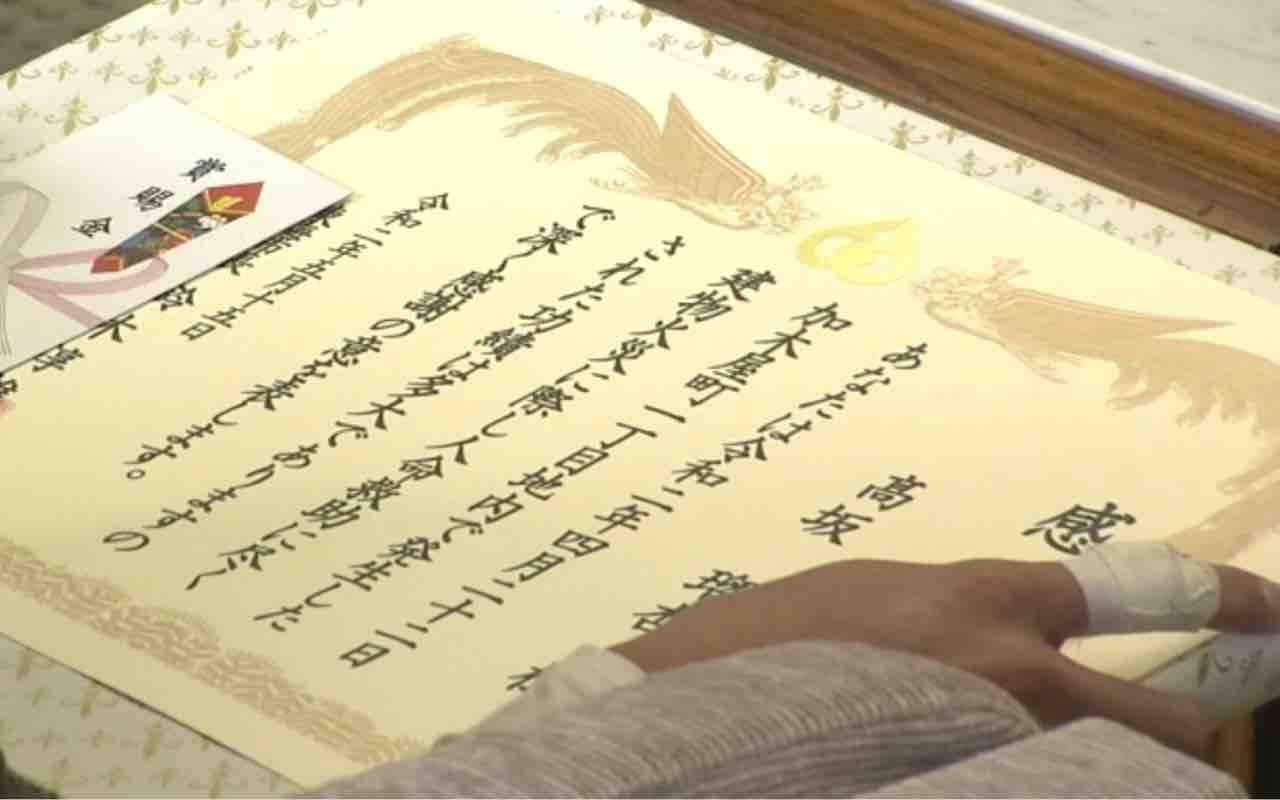 感
高坂
あなたは令和二年四月二十二日
加木屋町一丁目地内で発生した
建物火災に際し人命救助に尽く
された功績は多大でありますの
で深く感謝の意を表します。
令和二年五月十五日
鈴木淳
賞賜金